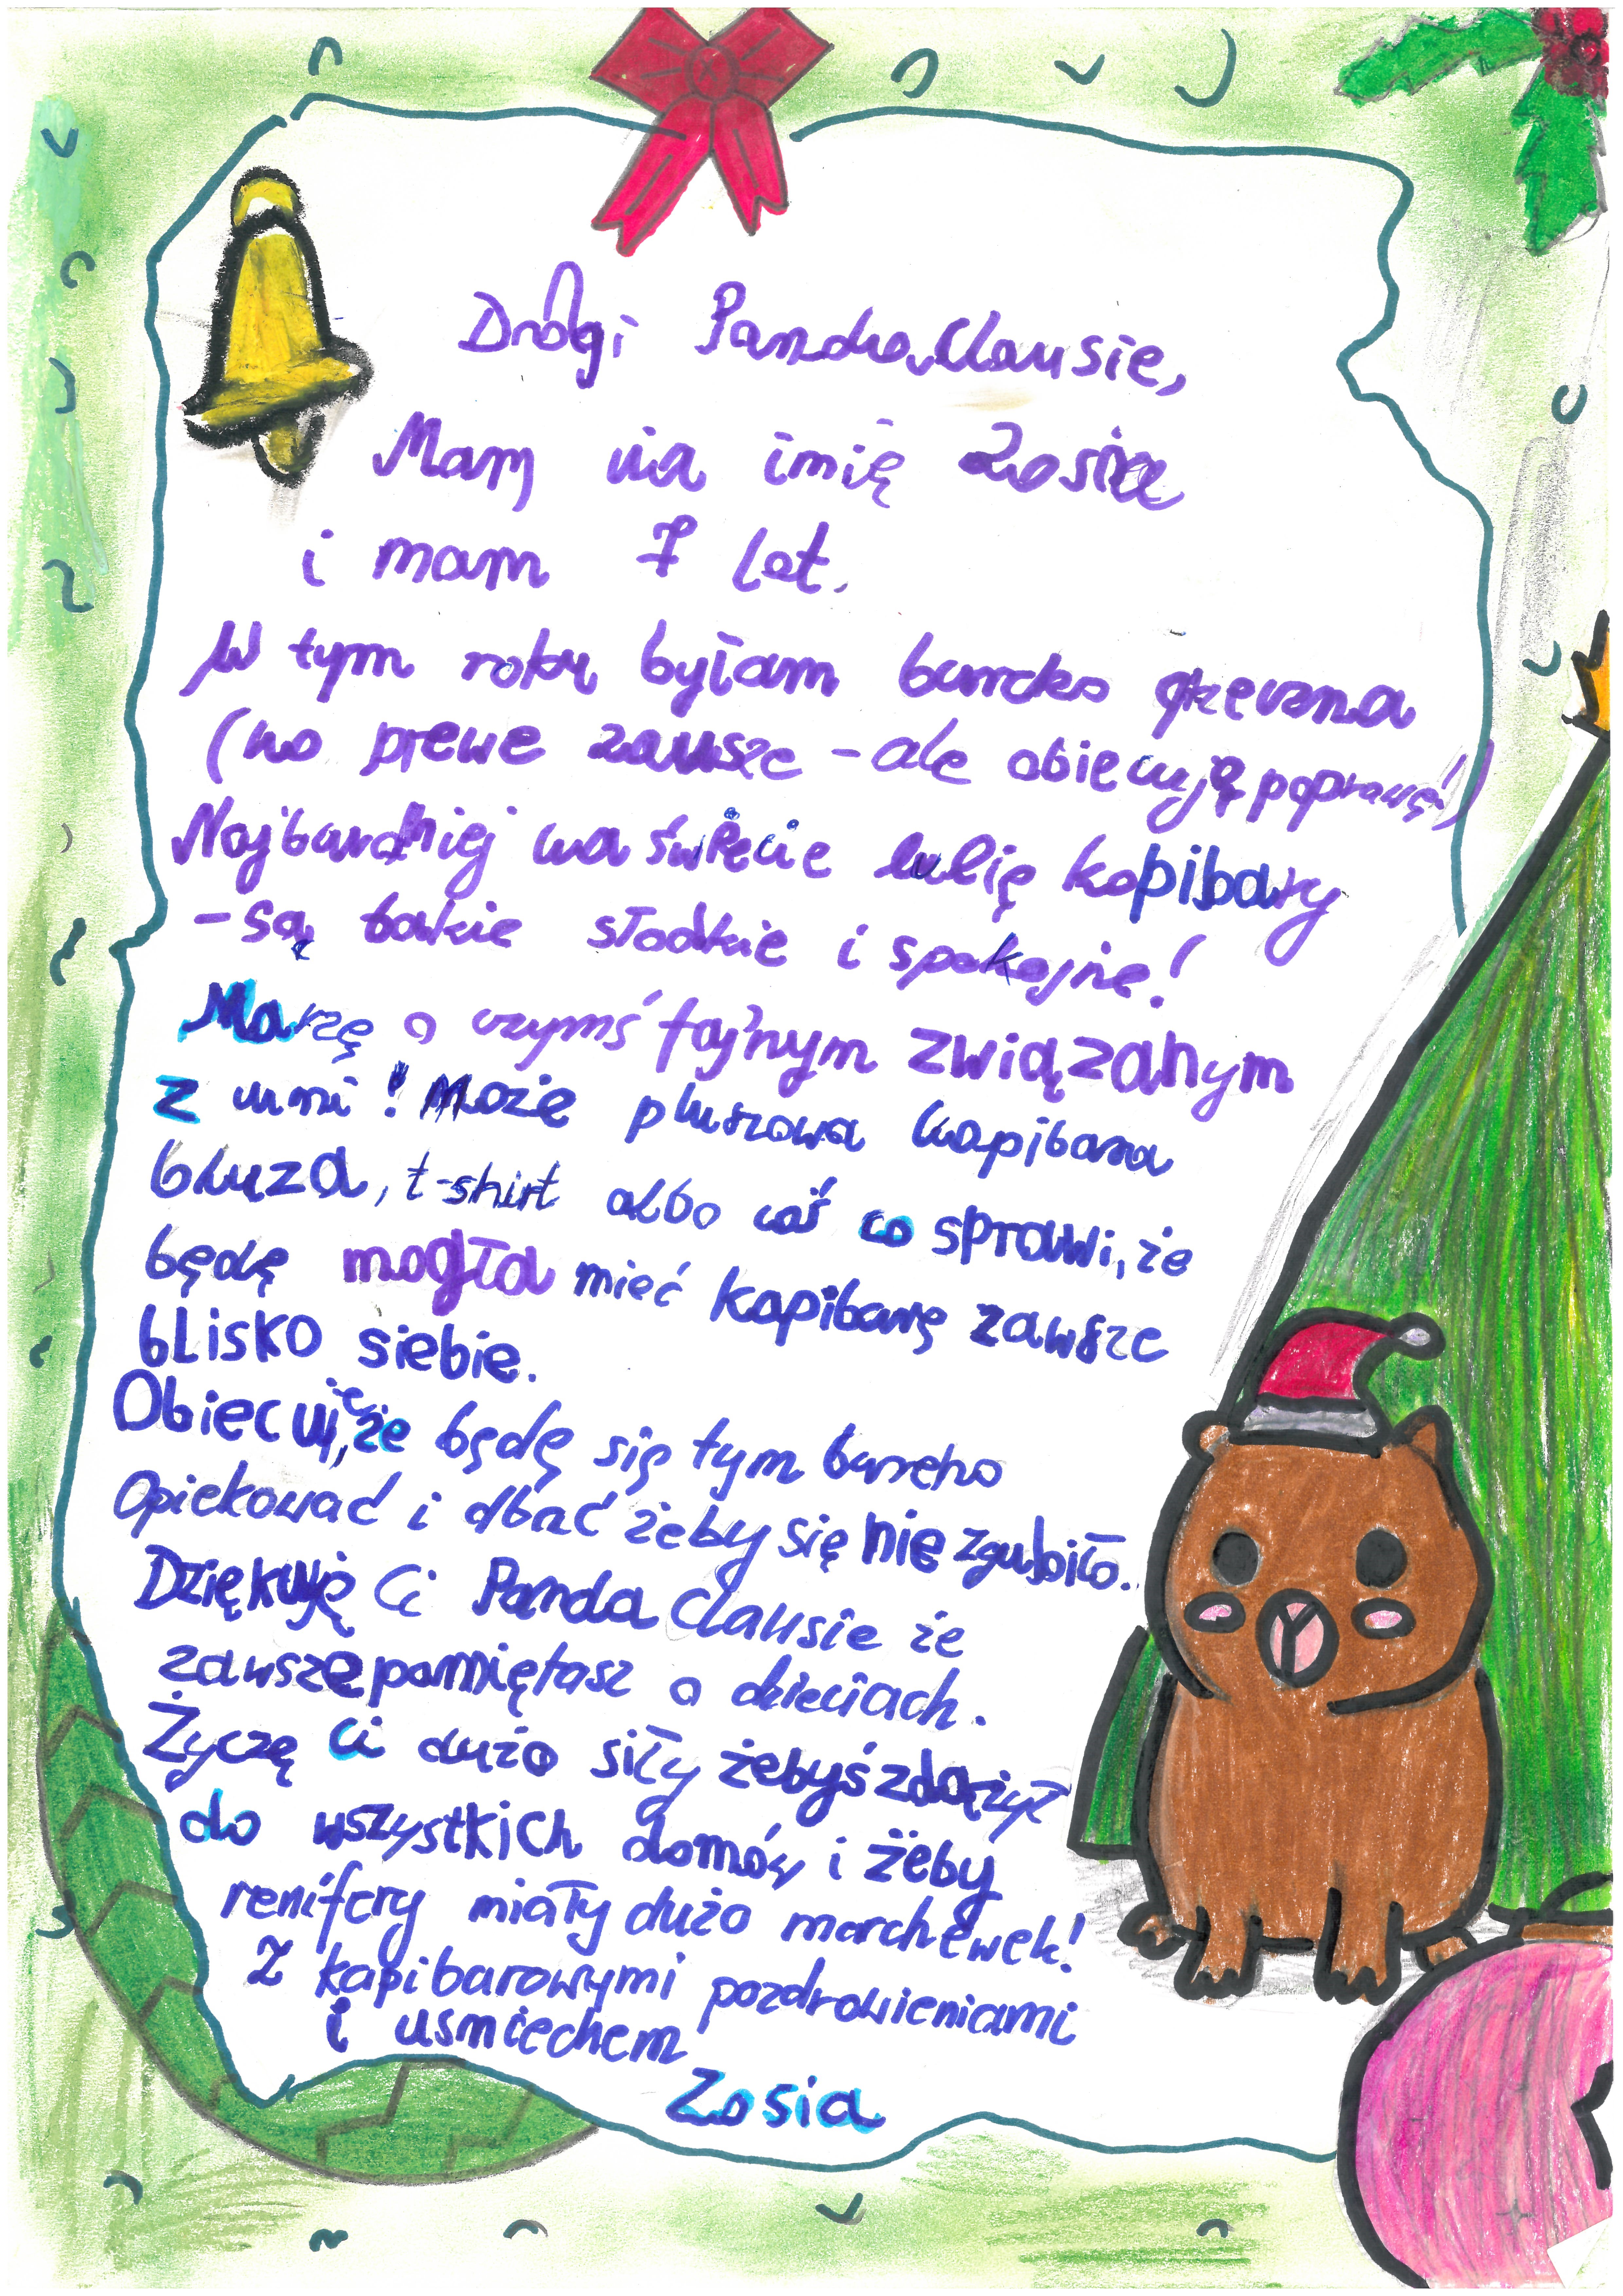 Drogi Panda Clausie,
Mam na imię Zosia
i mam 7 lat.
W tym roku byłam bardzo grzeczna
(no prewe zawsze - ale obiecuję poprawę!)
Najbardziej na świecie lubię kapibary
- są takie słodkie i spokojne!
Marzę o czymś fajnym związanym
z nimi! Może pluszowa kapibara
bluza, t-shirt albo coś co sprawi, że
będę mogła mieć kapibarę zawsze
blisko siebie.
Obiecuję, że będę się tym bardzo
opiekować i dbać żeby się nie zgubiło.
Dziękuję Ci Panda Clausie że
zawsze pamiętasz o dzieciach.
Życzę Ci dużo siły żebyś zdążył
do wszystkich domów i żeby
renifery miały dużo marchewek!
Z kapibarowymi pozdrowieniami
i usmiechem
Zosia